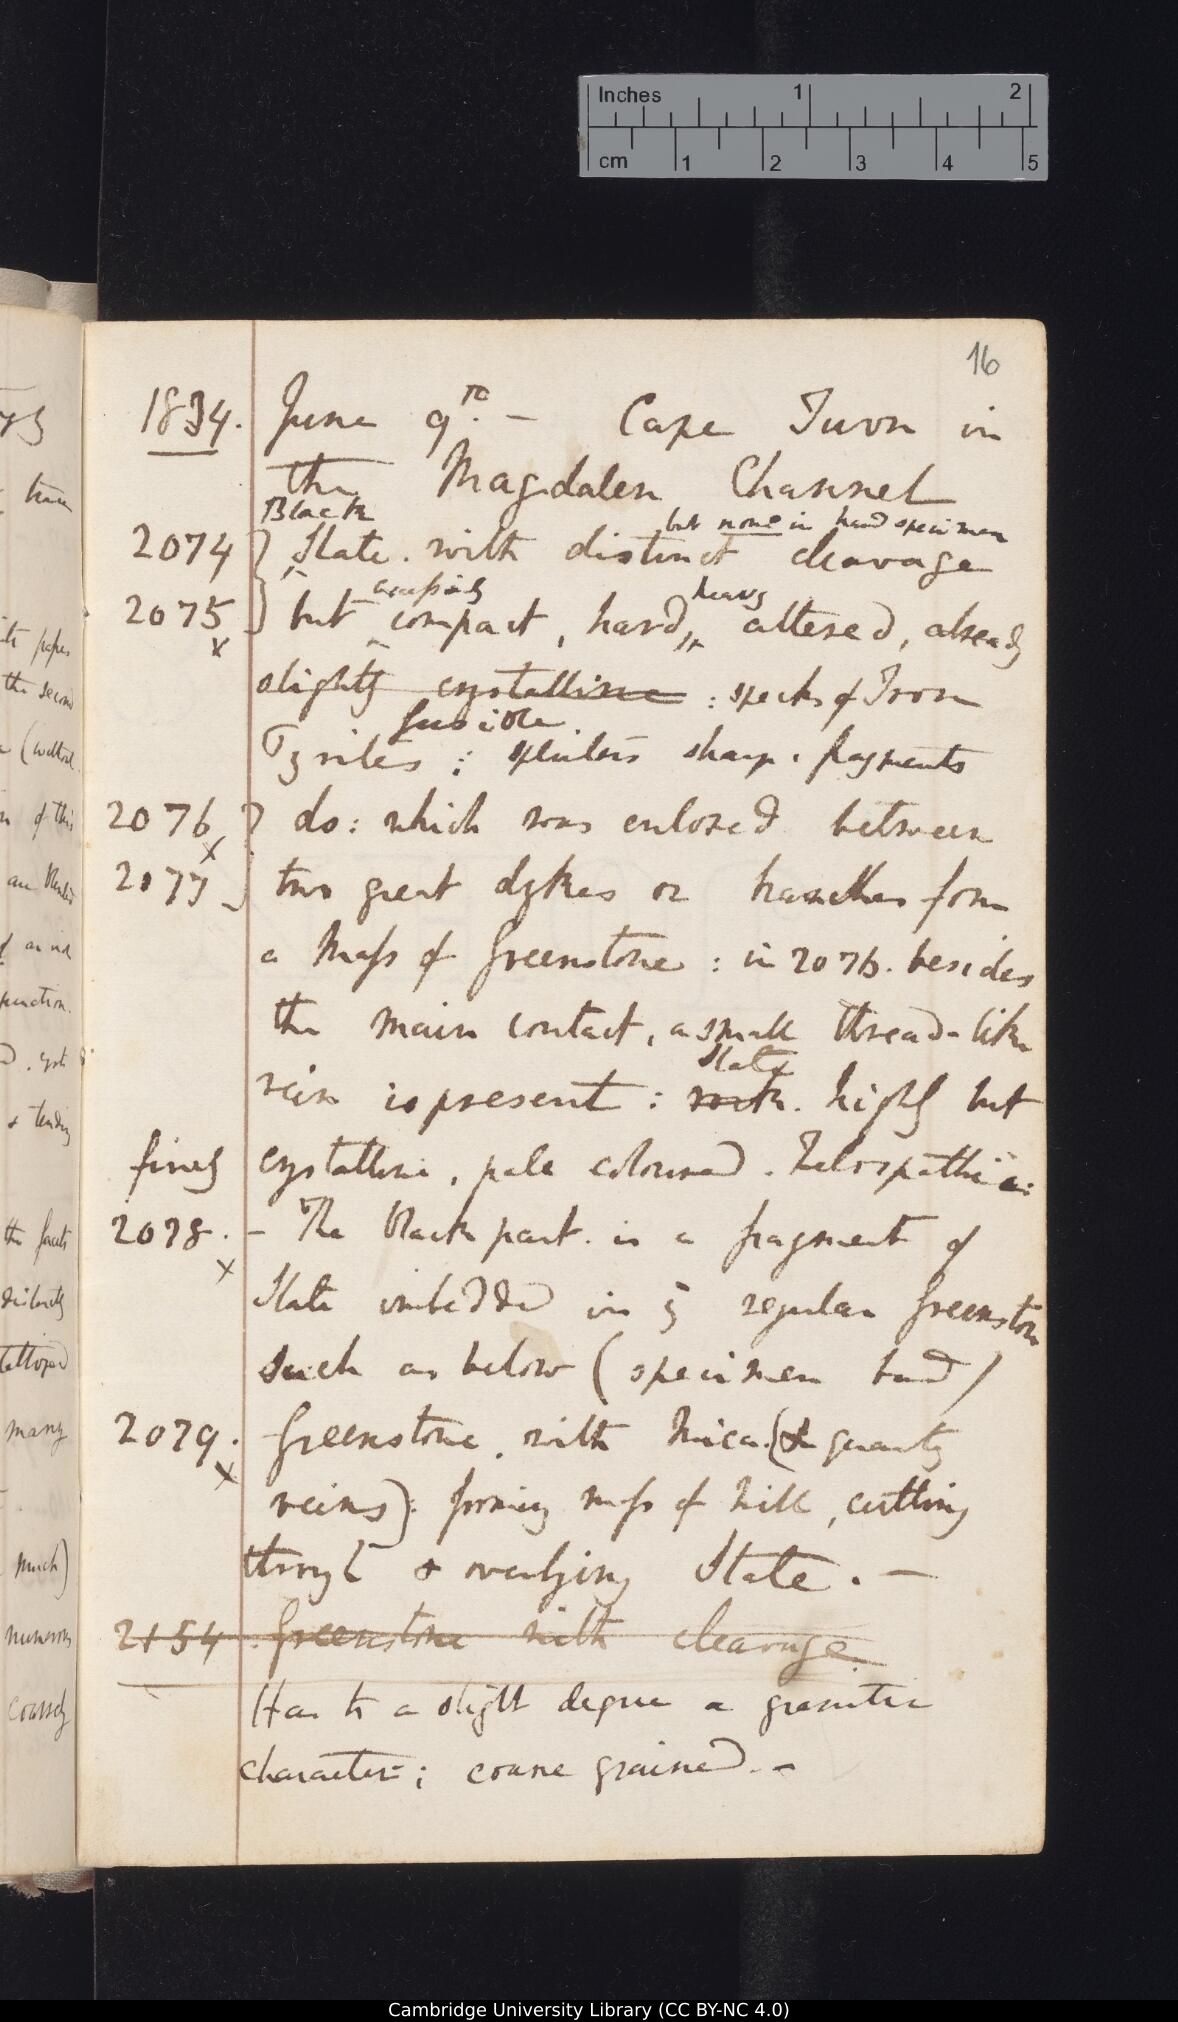 Inches 1 2
cm 1 2 3 4 5
16
1834. June 9th. — Cape Turn in
the Magdalen Channel
Black but none in hand specimen
2074 } Slate. with distinct cleavage
heavy
2075 } but compact, hard, altered, already
x
slightly crystalline : specks of Iron
fusible
Pyrites ; splinters sharp. fragments
2076 } do: which was enlosed between
x
2077 } two great dykes or branches from
a Mass of Greenstone : in 2076. besides
the main contact, a small thread-like
Slate
vein is present : rock. highly but
finely crystalline, pale coloured. Felspathic:
2078. – The black part. is a fragment of
x
Slate imbedded in regular Greenstone
such as below (specimen bad)
2079. Greenstone. with Mica. (& quartz
x
veins): forming mass of hill, cutting
through & overlying Slate. —
2154. Greenstone with cleavage
Has to a slight degree a granitic
character; coarse grained. –
train
the second
of this
of an
the facts
distinctly
many
much)
numerous
coarsely
Cambridge University Library (CC BY-NC 4.0)